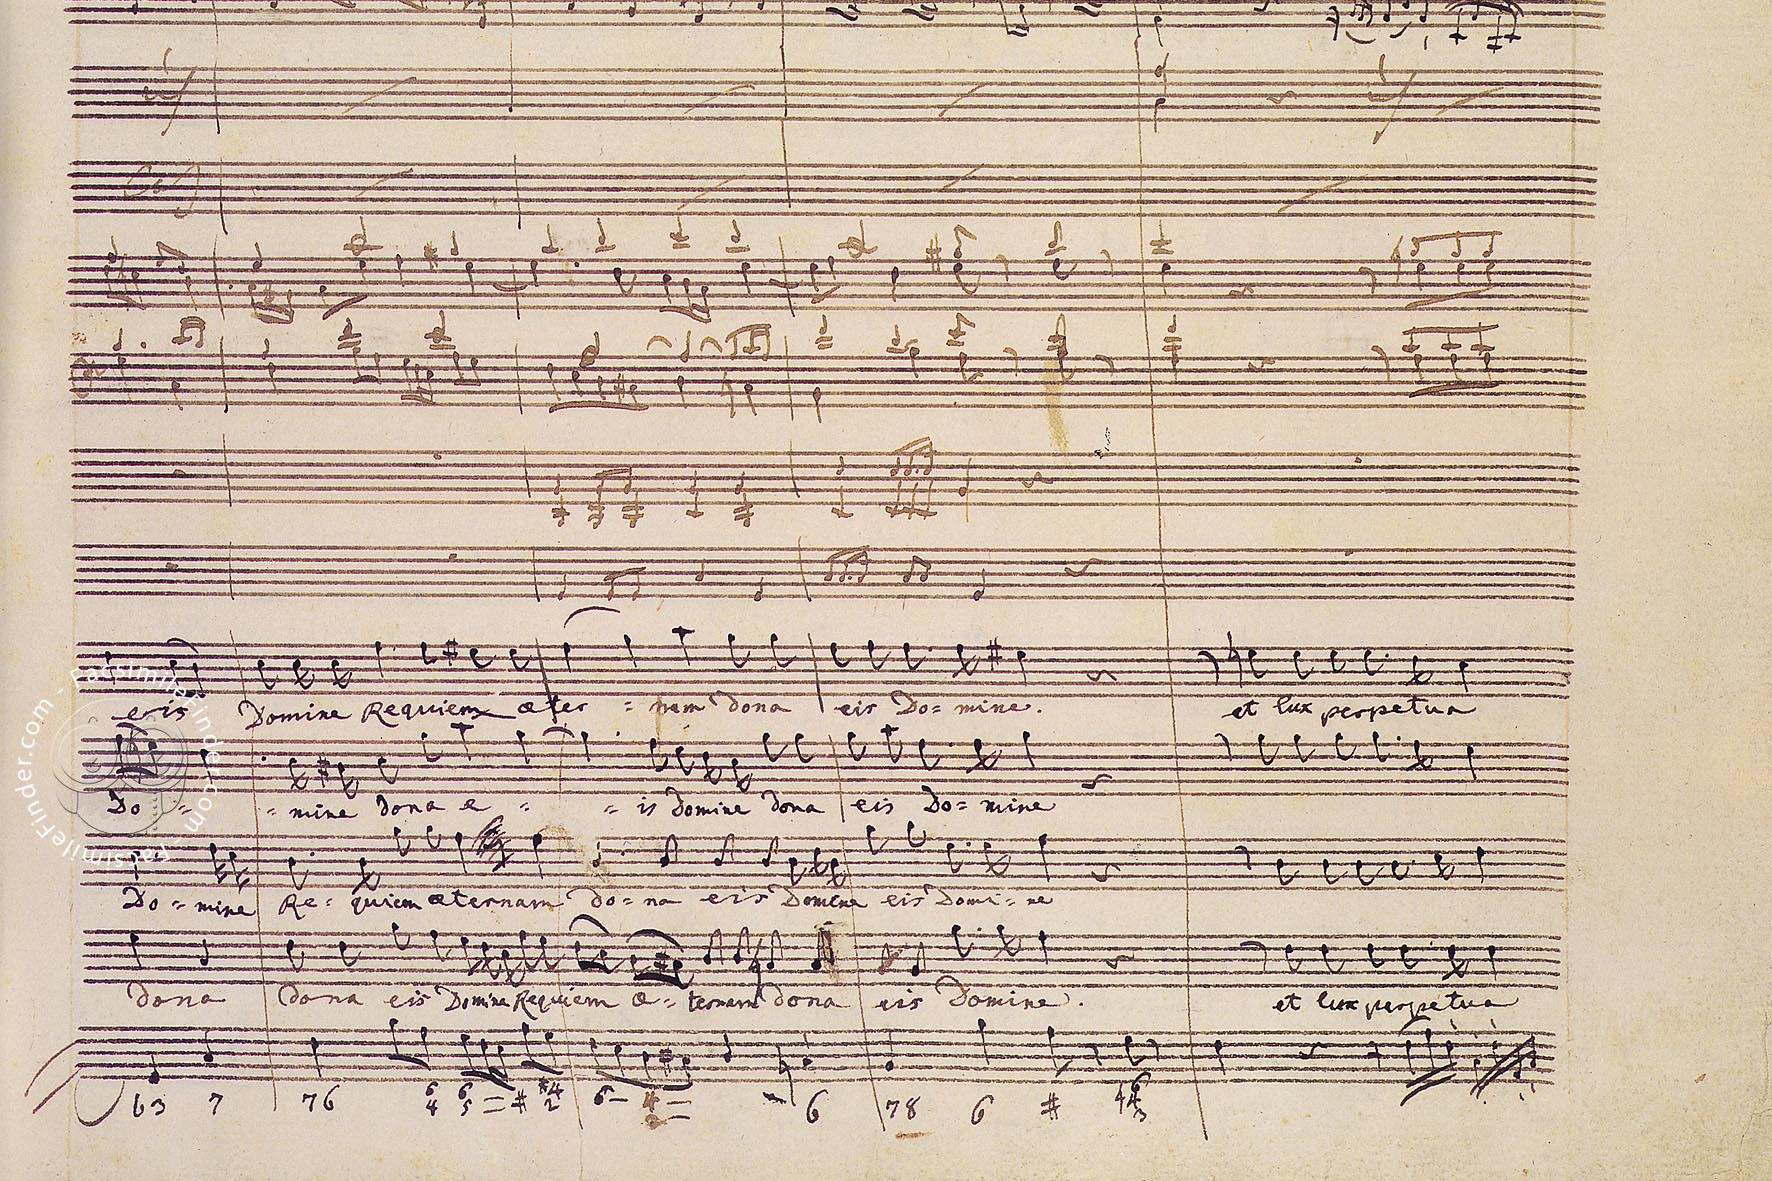 eris Domine Requiem æter = nam dona eis Do= mine. et lux perpetua
Do = = mine dona e = = is Domine dona eis Do= mine
Do= mine Re= quiem æternam do= na eis Domine eis Domi= ne
dona dona eis Domine Requiem æ= ternam dona eis Domine. et lux perpetua
63 7 76 6 4 6 5 = # #4 2 6 – 4 2 = 6 78 6 # 6 4 3
FacsimileFinder.com - FacsimileFinder.com - FacsimileFinder.com